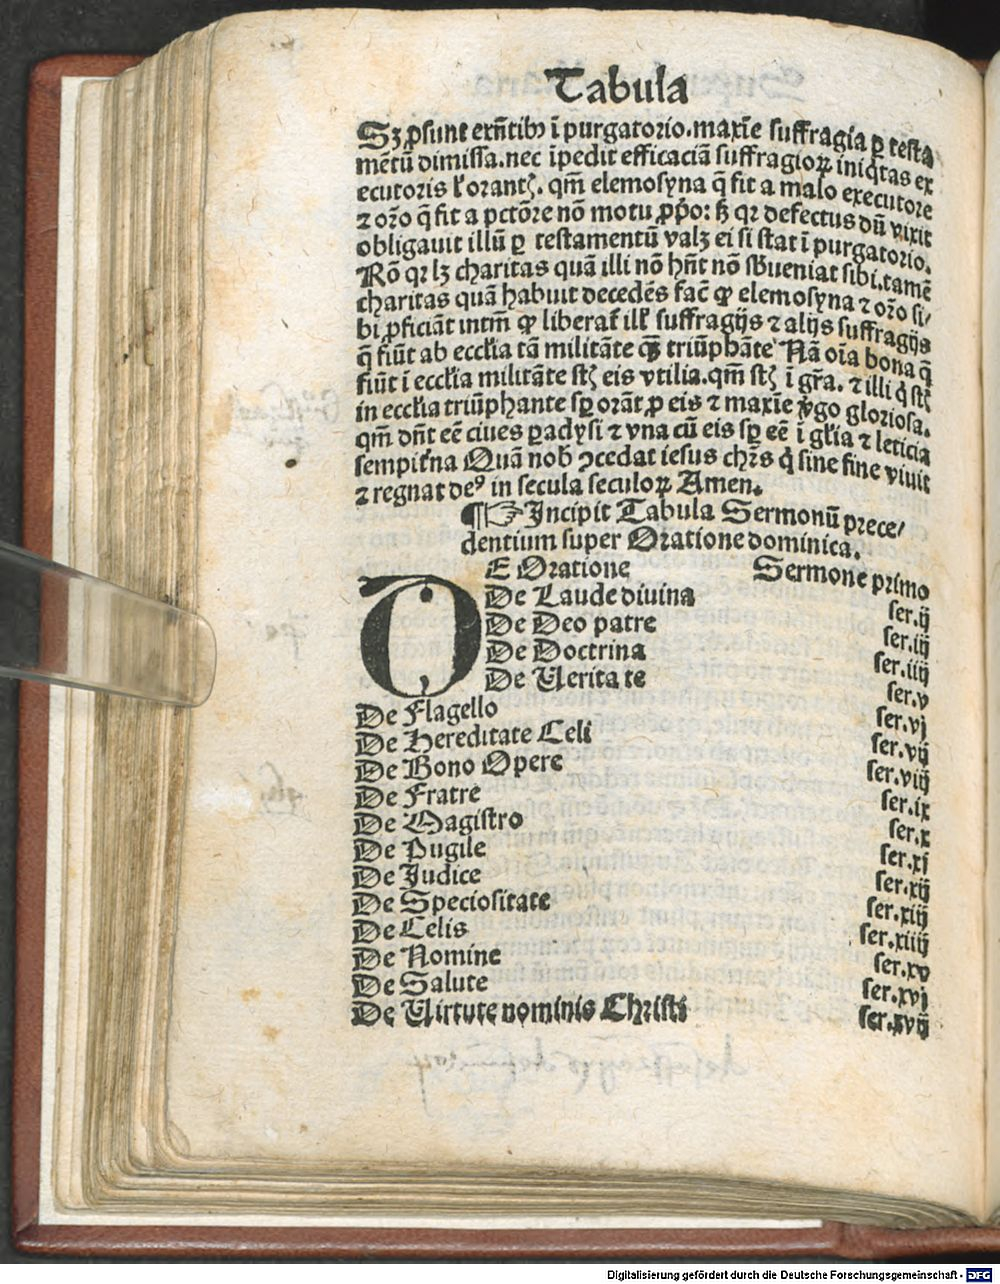 Tabula
Sꝫ ꝓsunt exñtibꝰ ī purgatorio. maxīe suffragia ꝑ testa
mētū dimissa. nec īpedit efficaciā suffragioꝝ iniqͥtas ex
ecutoris ł orantꝭ. qm̄ elemosyna q̄ fit a malo executore
⁊ orō q̄ fit a pctōre nō motu ꝓpͦo: qꝛ defectus dū vixit
obligauit illū ꝑ testamentū valꝫ ei si stat ī purgatorio.
Rō qꝛ lꝫ charitas quā illi nō hn̄t nō sbueniat sibi. tamē
charitas quā habuit decedēs fac̄ ꝙ elemosyna ⁊ orō si/
bi ꝓficiāt intm̄ ꝙ liberat̄ ill suffragijs ⁊ alijs suffragijs
q̄ fiūt ab ecclīa tā militāte qꝫ triūphāte Nā oīa bona q̄
fiūt ī ecclīa militāte st̄ eis vtilia. qm̄ stꝭ ī gr̄a. ⁊ illi qͥ st̄
in ecclīa triūphante sꝑ orāt ꝓ eis ⁊ maxīe vͥgo gloriosa.
qm̄ dn̄t eē ciues ꝑadysi ⁊ vna cū eis sꝑ eē ī glīa ⁊ leticia
sempitna Quā nob ꝯcedat iesus chrs̄ qͥ sine fine viuit
⁊ regnat deꝰ in secula seculoꝝ Amen.
¶☞Incipit Tabula Sermonū prece/
dentium super Oratione dominica.
DE Oratione Sermone primo
De Laude diuina ser.ij
De Deo patre ser.iij
De Doctrina ser.iiij
De Veritate ser.v
De Flagello ser.vj
De Hereditate Celi ser.vij
De Bono Opere ser.viij
De Fratre ser.ix
De Magistro ser.x
De Pugile ser.xj
De Judice ser.xij
De Speciositate ser.xiij
De Celis ser.xiiij
De Nomine ser.xv
De Salute ser.xvj
De Virtute nominis Christi ser.xvij
Digitalisierung gefördert durch die Deutsche Forschungsgemeinschaft - DFG